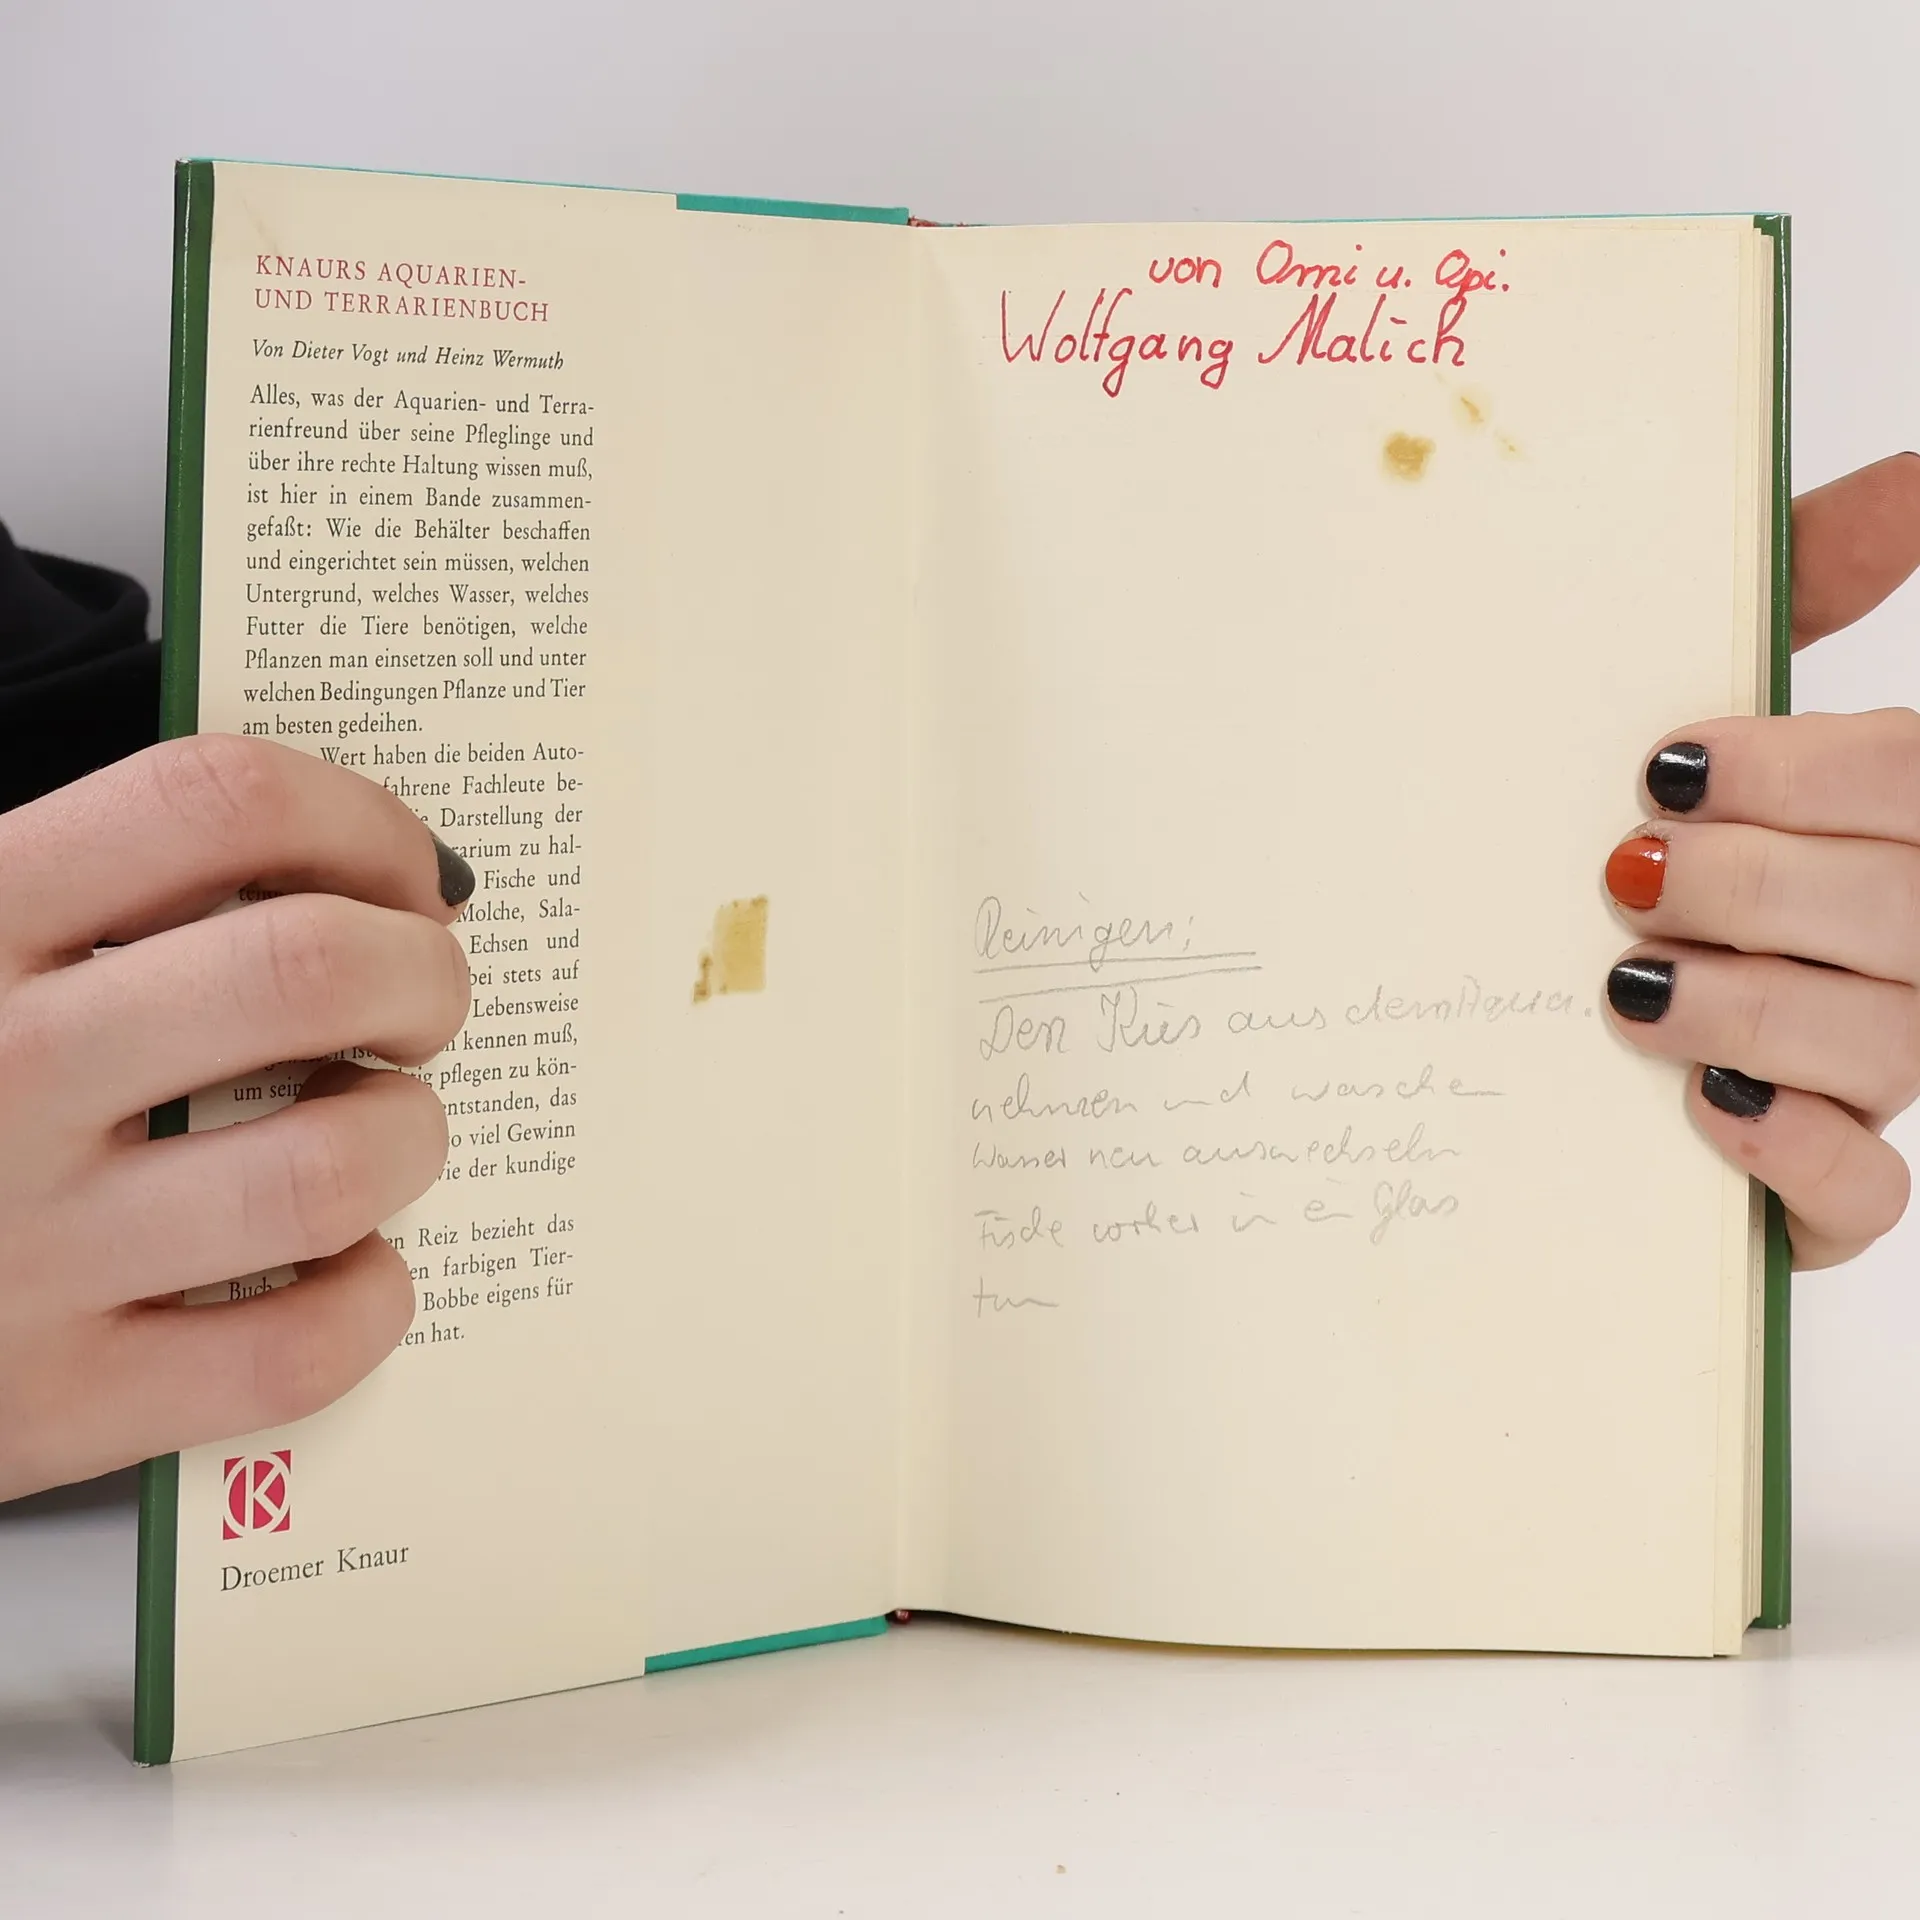 KNAURS AQUARIEN-
UND TERRARIENBUCH
Von Dieter Vogt und Heinz Wermuth
Alles, was der Aquarien- und Terra-
rienfreund über seine Pfleglinge und
über ihre rechte Haltung wissen muß,
ist hier in einem Bande zusammen-
gefaßt: Wie die Behälter beschaffen
und eingerichtet sein müssen, welchen
Untergrund, welches Wasser, welches
Futter die Tiere benötigen, welche
Pflanzen man einsetzen soll und unter
welchen Bedingungen Pflanze und Tier
am besten gedeihen.
Wert haben die beiden Auto-
fahrene Fachleute be-
Darstellung der
rarium zu hal-
Fische und
Molche, Sala-
Echsen und
bei stets auf
Lebensweise
kennen muß,
um pflegen zu kön-
entstanden, das
so viel Gewinn
der kundige
Reiz bezieht das
farbigen Tier-
Buch Bobbe eigens für
hat.
K
Droemer Knaur
von Omi u. Opi.
Wolfgang Malich
Reinigen:
Den Kies aus dem Aqua.
nehmen und waschen
Wasser neu auswechseln
Fische vorher in ein Glas
tun